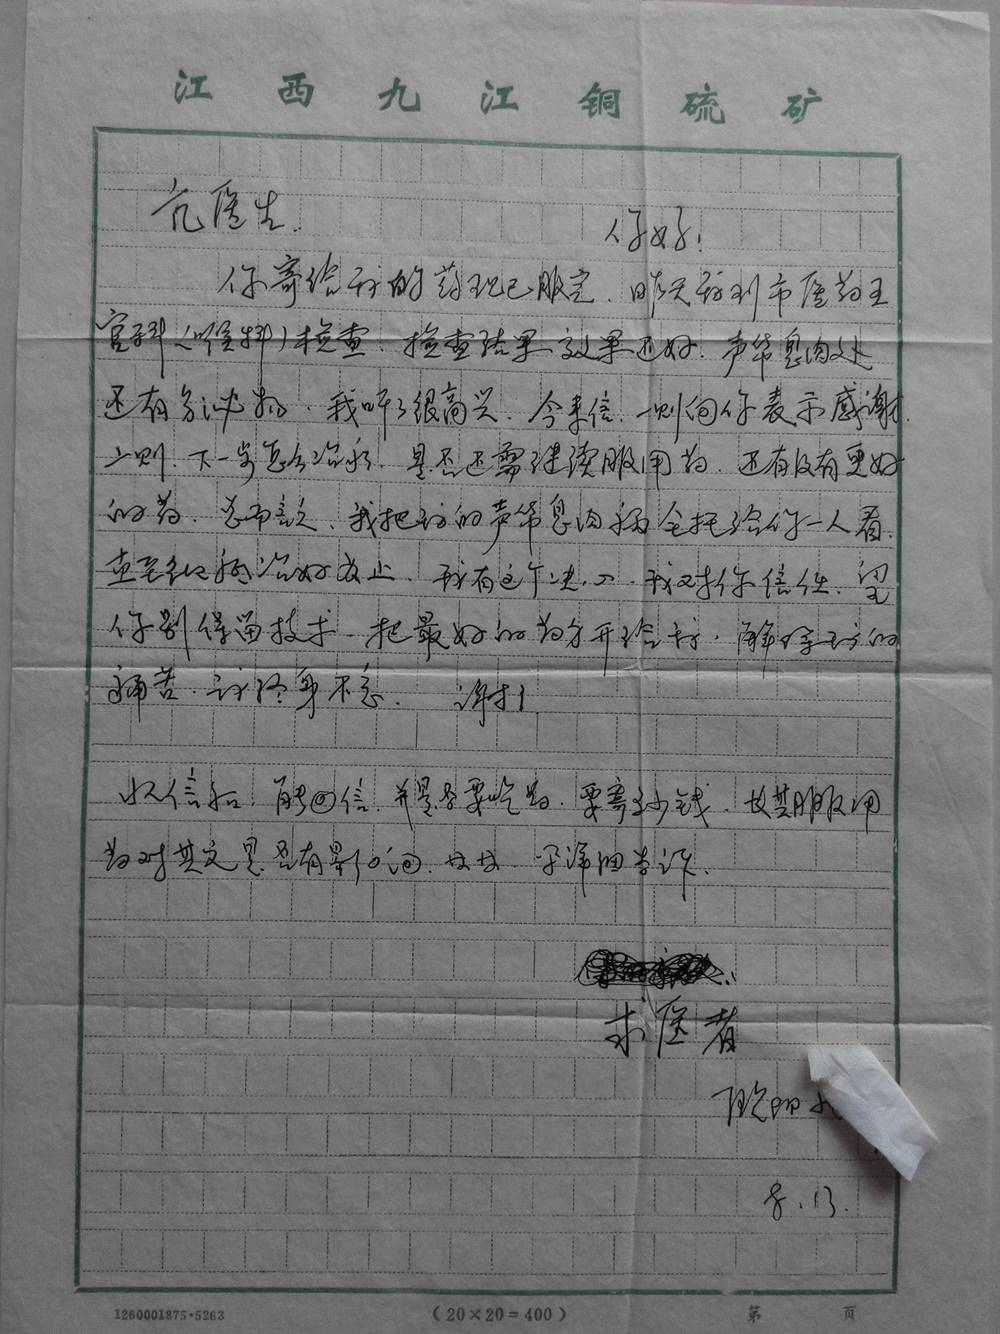 江西九江铜硫矿
范医生. 你好!
你寄给我的药现已服完. 昨天我到市医药五
官科(喉科)检查. 检查结果效果还好. 声带息肉处
还有分泌物. 我听了很高兴. 今来信. 一则向你表示感谢.
二则. 下一步怎么治疗. 是否还需继续服用药. 还有没有更好
的药. 总而言之. 我把我的声带息肉病全托给你一人看.
直至我病治好为止. 我有这个决心. 我对你信任. 望
你别保留技术. 把最好的药方开给我. 解除我的
痛苦. 我终身不忘. 谢!
收信后. 能回信. 并是否要吃药. 要寄多少钱. 长期服用
药对其它是否有影响. 等. 详细告诉.
求医者
欧阳
8.13.
1260001875·5263 (20×20=400) 第 页